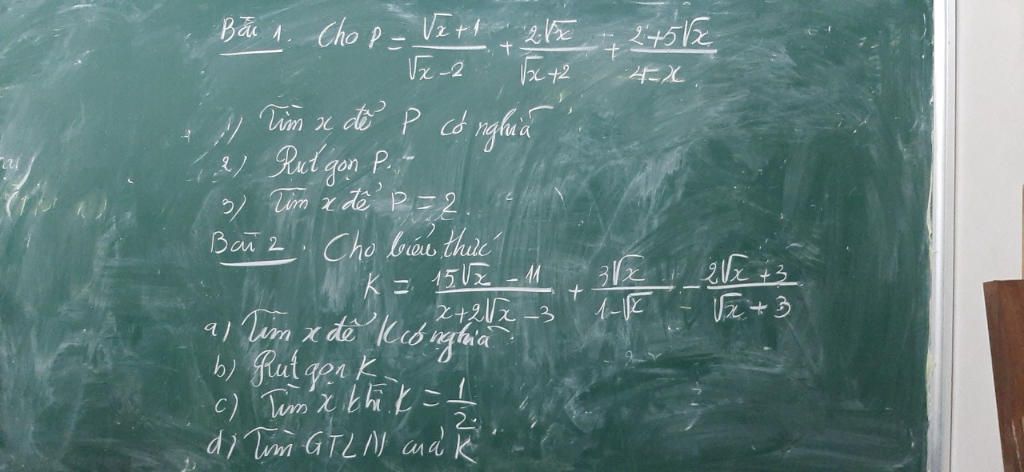 Bài 1. Cho P = (√x + 1)/(√x - 2) + (2√x)/(√x + 2) + (2 + 5√x)/(4 - x)
1) Tìm x để P có nghĩa
2) Rút gọn P.
3) Tìm x để P = 2.
Bài 2. Cho biểu thức
K = (15√x - 11)/(x + 2√x - 3) + (3√x)/(1 - √x) - (2√x + 3)/(√x + 3)
a) Tìm x để K có nghĩa.
b) Rút gọn K
c) Tìm x khi K = 1/2.
d) Tìm GTLN của K